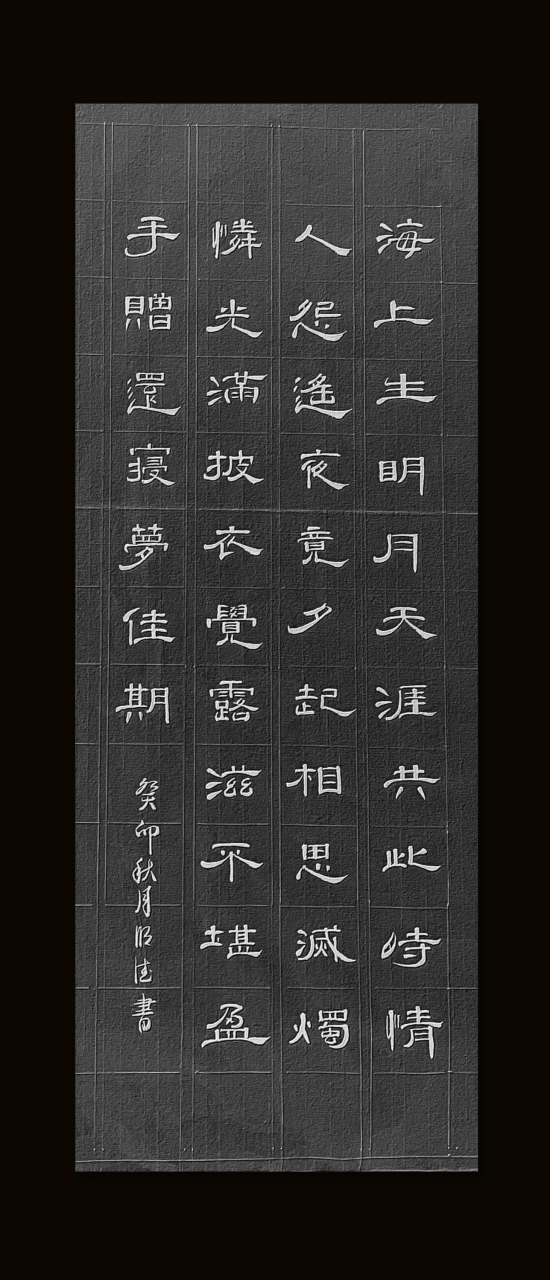 海上生明月天涯共此時情
人怨遙夜竟夕起相思滅燭
憐光滿披衣覺露滋不堪盈
手贈還寝夢佳期
癸卯秋月 書